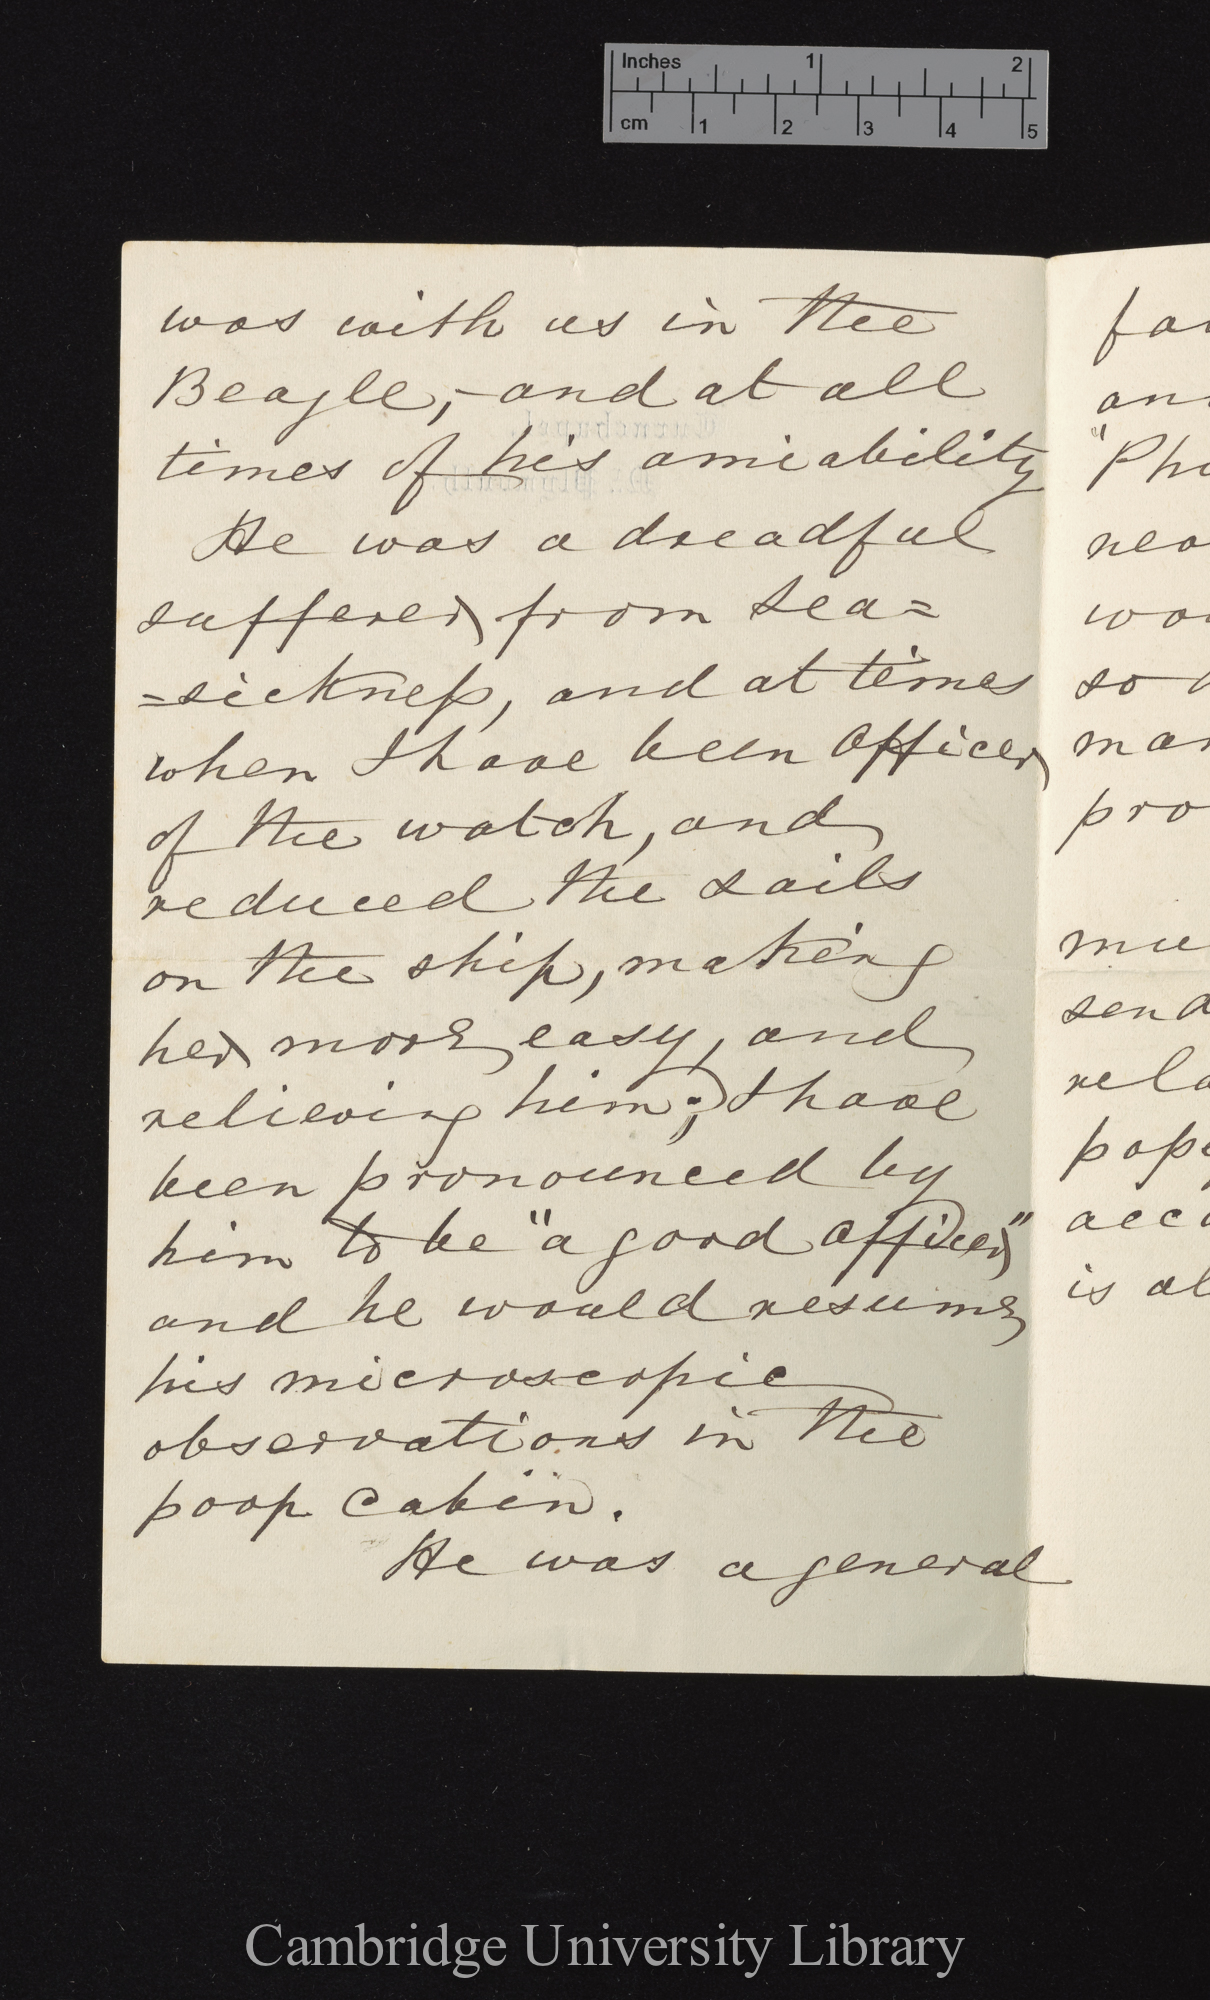 Inches 1 2
cm 1 2 3 4 5
was with us in the
Beagle,- and at all
times of his amiability
He was a dreadful
sufferer from sea=
=sickness, and at times
when I have been Officer
of the watch, and
reduced the sails
on the ship, making
her more easy, and
relieving him; I have
been pronounced by
him to be "a good officer"
and he would resume
his microscopic
observations in the
poop Cabin.
He was a general
so
is
Cambridge University Library